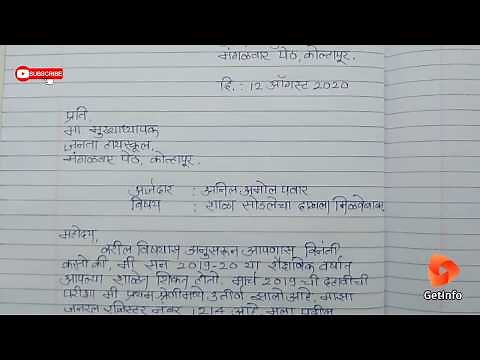 मंगळवार पेठ, कोल्हापूर.
दि. : 12 ऑगस्ट 2020
SUBSCRIBE
प्रति,
मा मुख्याध्यापक
जनता हायस्कूल,
मंगळवार पेठ, कोल्हापूर.
अर्जदार : अनिल अमोल पवार
विषय : शाळा सोडलेचा दाखला मिळणेबाबत
महोदय,
वरील विषयास अनुसरून आपणास विनंती
करतो की, मी सन 2019-20 या शैक्षणिक वर्षात
आपल्या शाळेत शिकत होतो. मार्च 2019 ची दहावीची
परीक्षा मी प्रथम श्रेणीमध्ये उत्तीर्ण झालो आहे. माझा
जनरल रजिस्टर नंबर 1214 आहे. मला पुढील
GetInfo